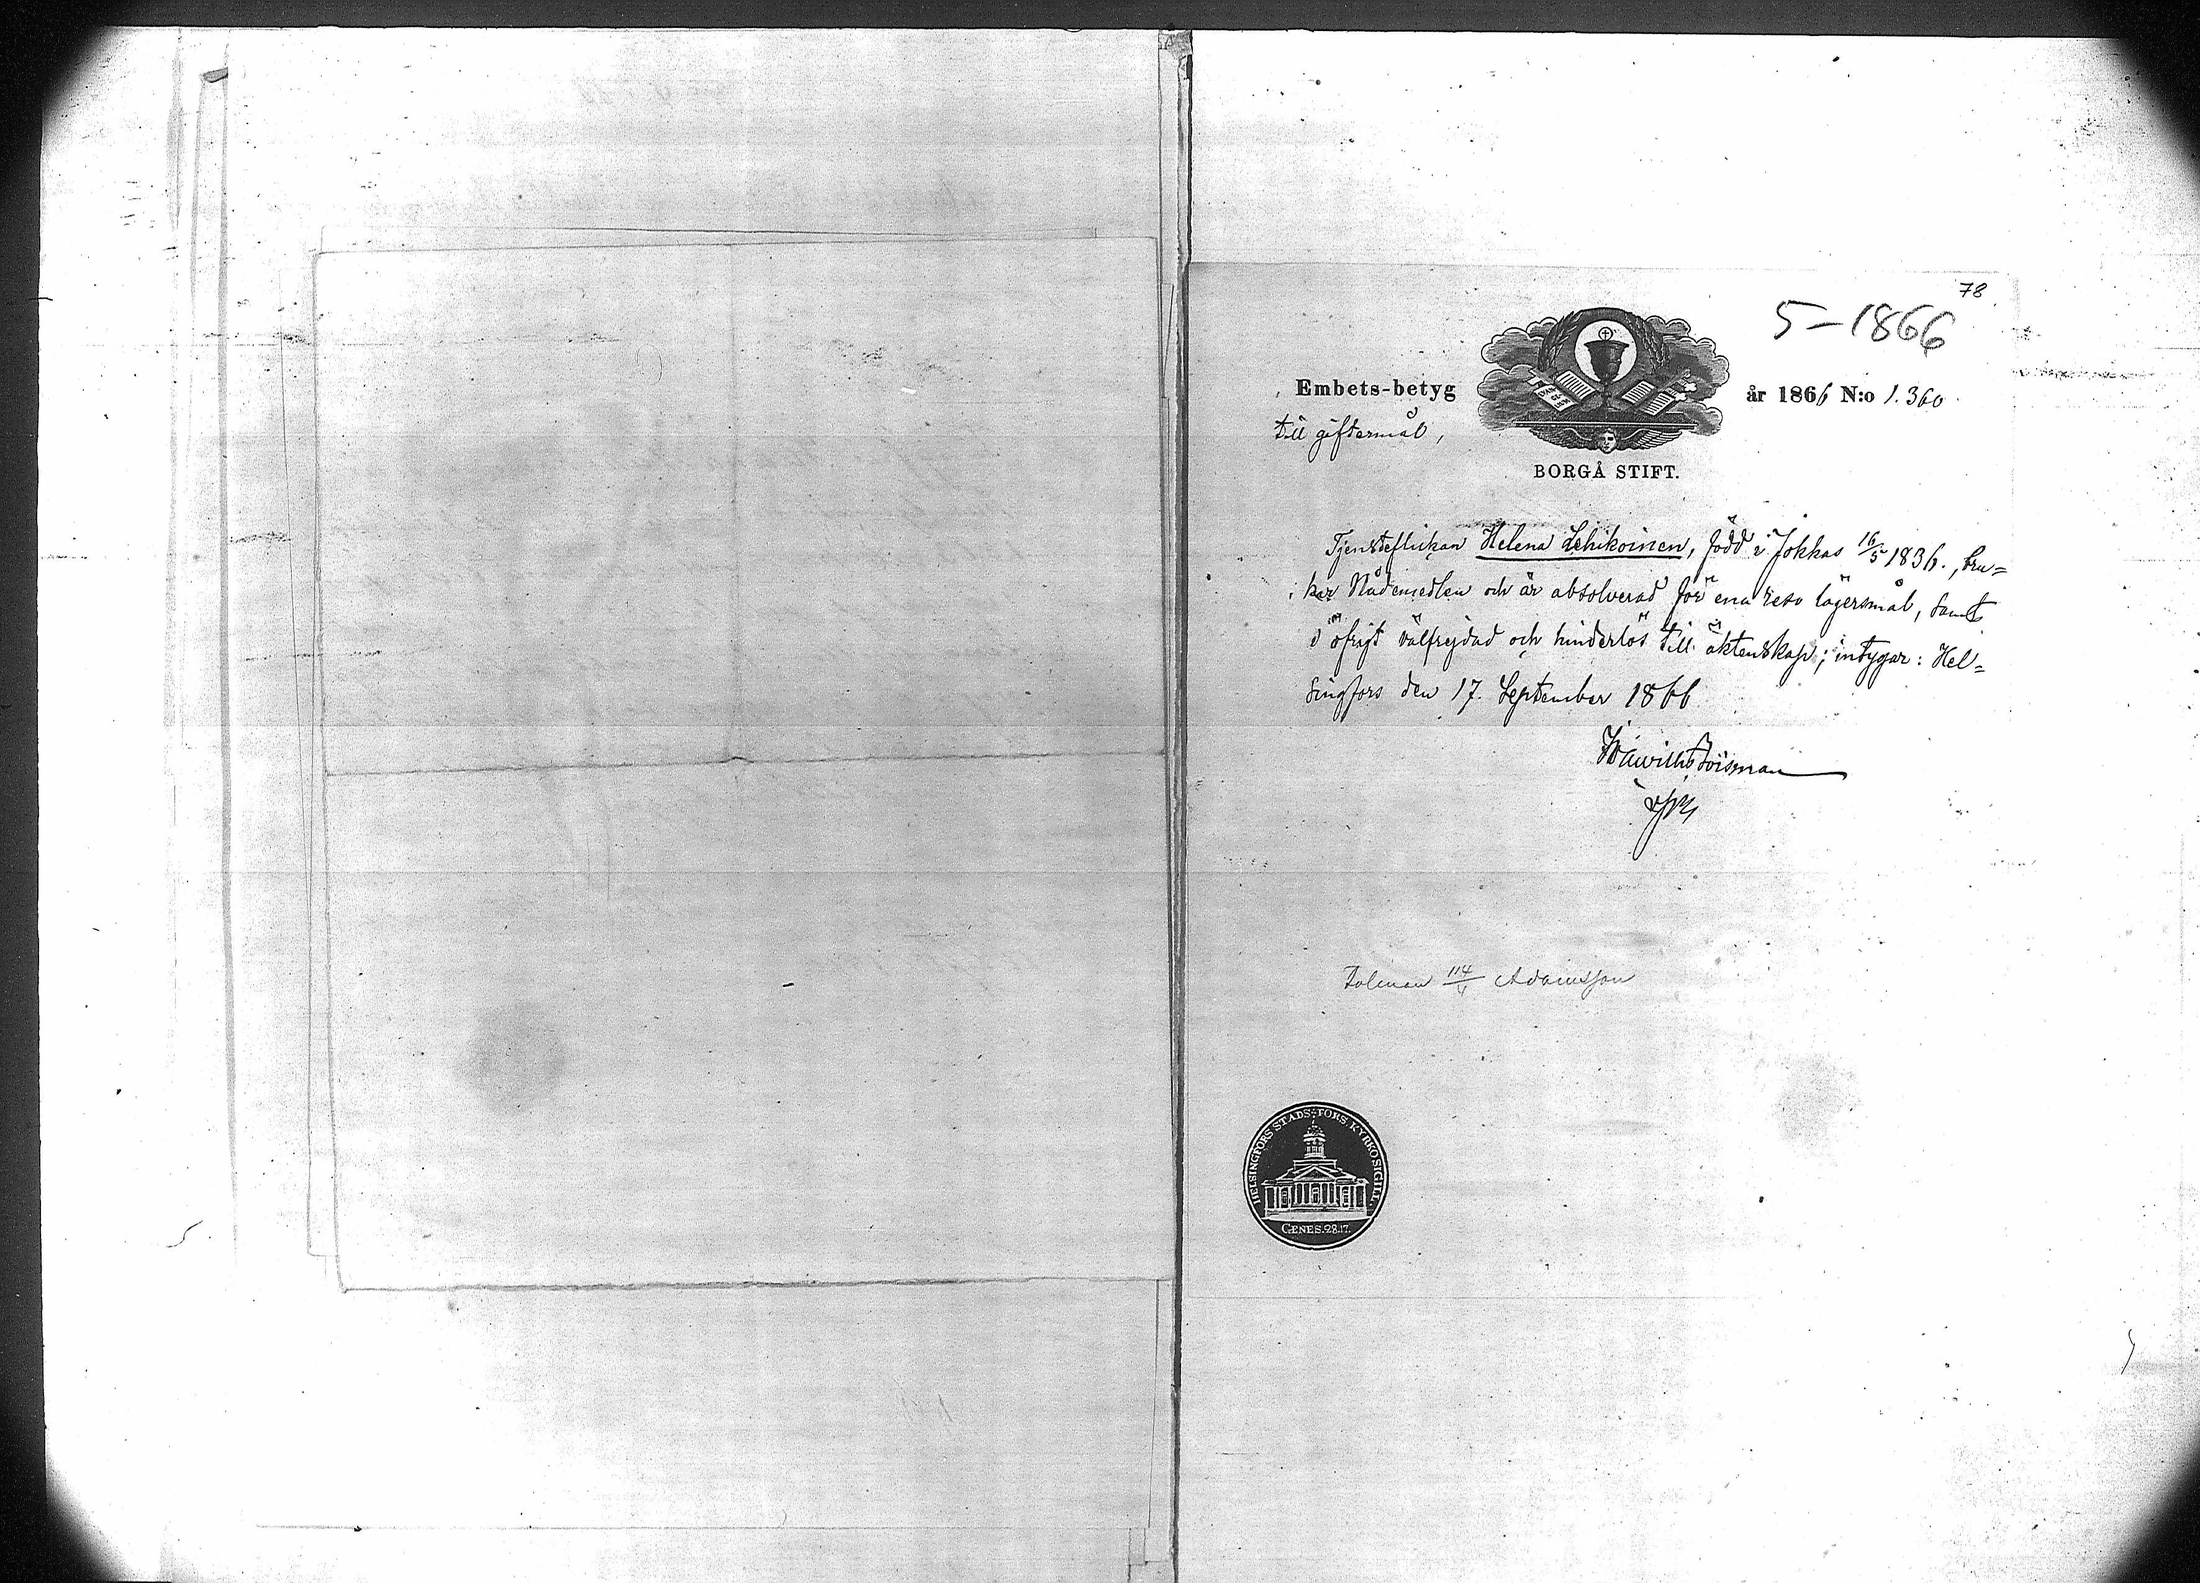 78
5-1866
Embets-betyg
år 1866 N:o 1.360
till giftermål,
BORGÅ STIFT.
Tjensteflickan Helena Lehikoinen, född i Jokkas 16/5 1836., bru=
kar Nådemedlen och är absolverad för ena resa lägersmål, samt
i öfrigt välfrejdad och hinderlös till äktenskap; intygar: Hel=
singfors den 17. September 1866
Tolman 114/4 Adamsson
HELSINGFORS STADS-FÖRS. KYRKO SIGILL.
GENES. 28.17.